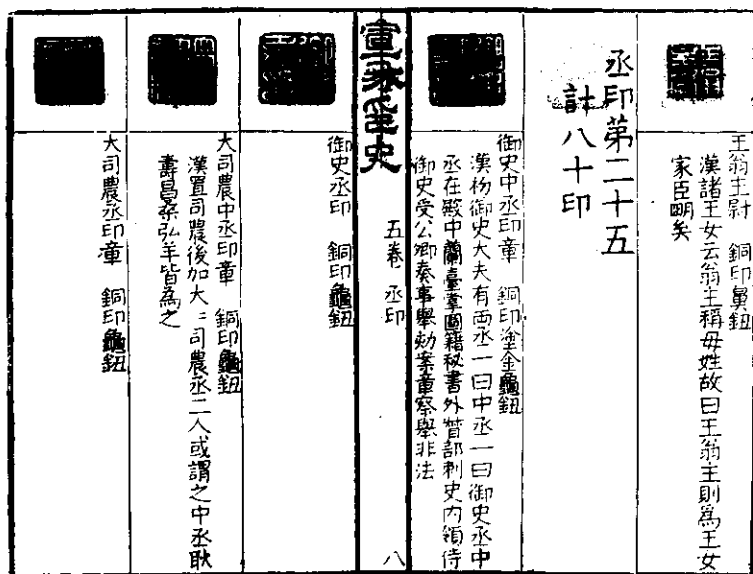 王翁主尉 銅印鼻鈕
漢諸王女云翁主稱母姓故曰王翁主則為王女
家臣明矣
丞印第二十五
計八十印
御史中丞印章 銅印塗金龜鈕
漢初御史大夫有两丞一曰中丞一曰御史丞中
丞在殿中蘭臺掌圖籍秘書外督部刺史内領侍
御史受公卿奏事舉劾案章察舉非法
五卷 丞印
八
御史丞印 銅印龜鈕
大司農中丞印章 銅印龜鈕
漢置司農後加大二司農丞二人或謂之中丞耿
壽昌桑弘羊皆為之
大司農丞印章 銅印龜鈕